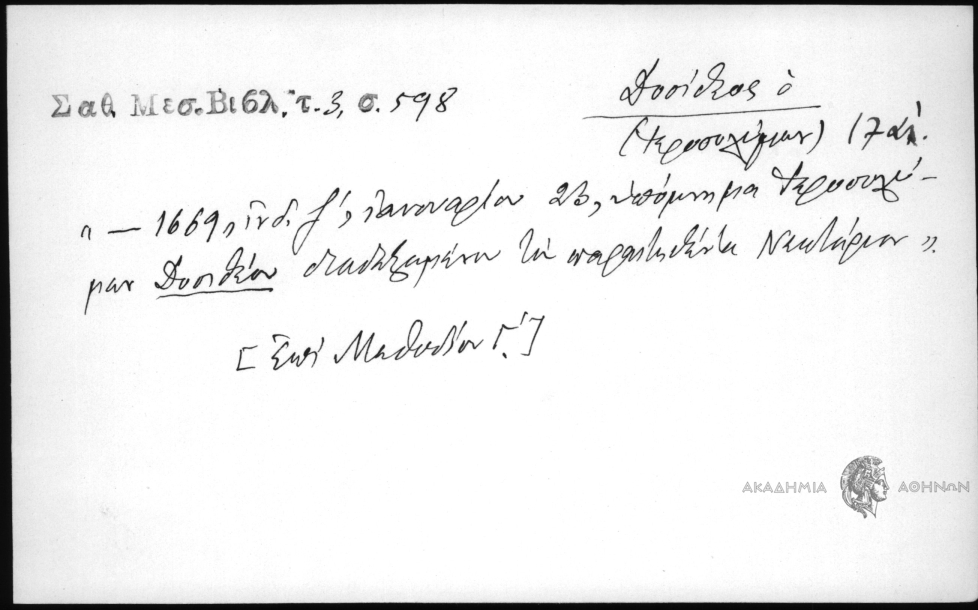 Σαθ. Μεσ. Βιβλ. τ. 3, σ. 598
Δοσίθεος ὁ
(Ἱεροσολύμων) 17 αἰ.
"— 1669, ἰνδ. ζ', ἰανουαρίου 23, ὑπόμνημα Ἱεροσολύ-
μων Δοσιθέου διαδεξαμένου τὸν παραιτηθέντα Νεκτάριον".
[Ἐπὶ Μεθοδίου Γ']
ΑΚΑΔΗΜΙΑ ΑΘΗΝΩΝ